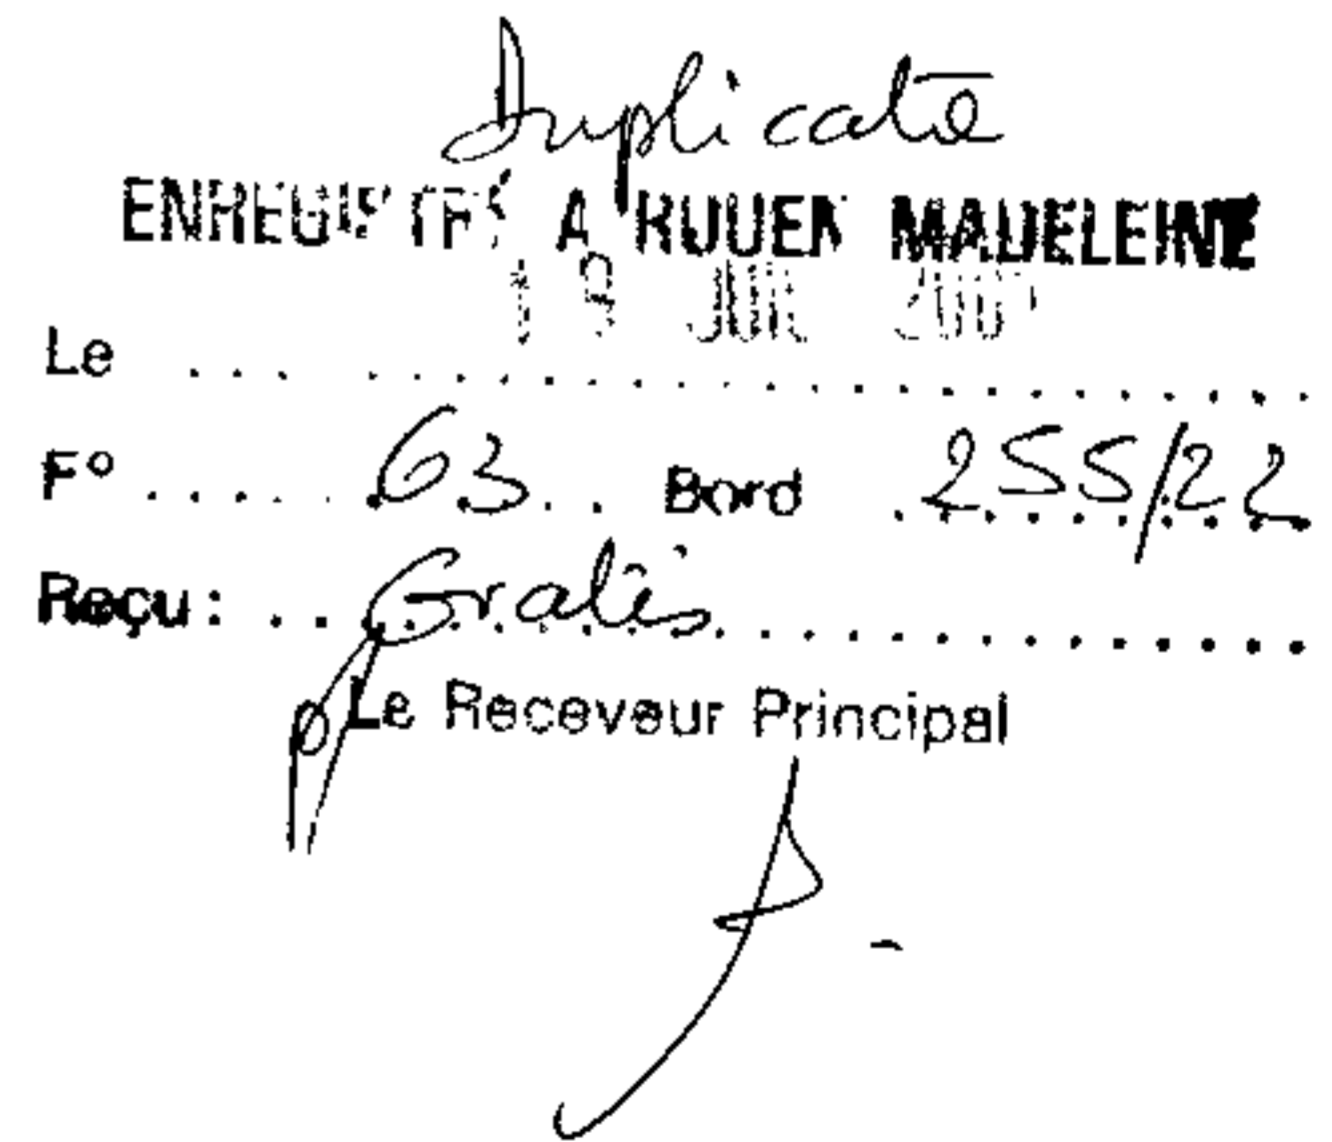 Duplicata
ENREGISTRÉ A ROUEN MADELEINE
19 JUIL
Le
F° 63 Bord 255/22
Reçu : Gratis
Le Receveur Principal